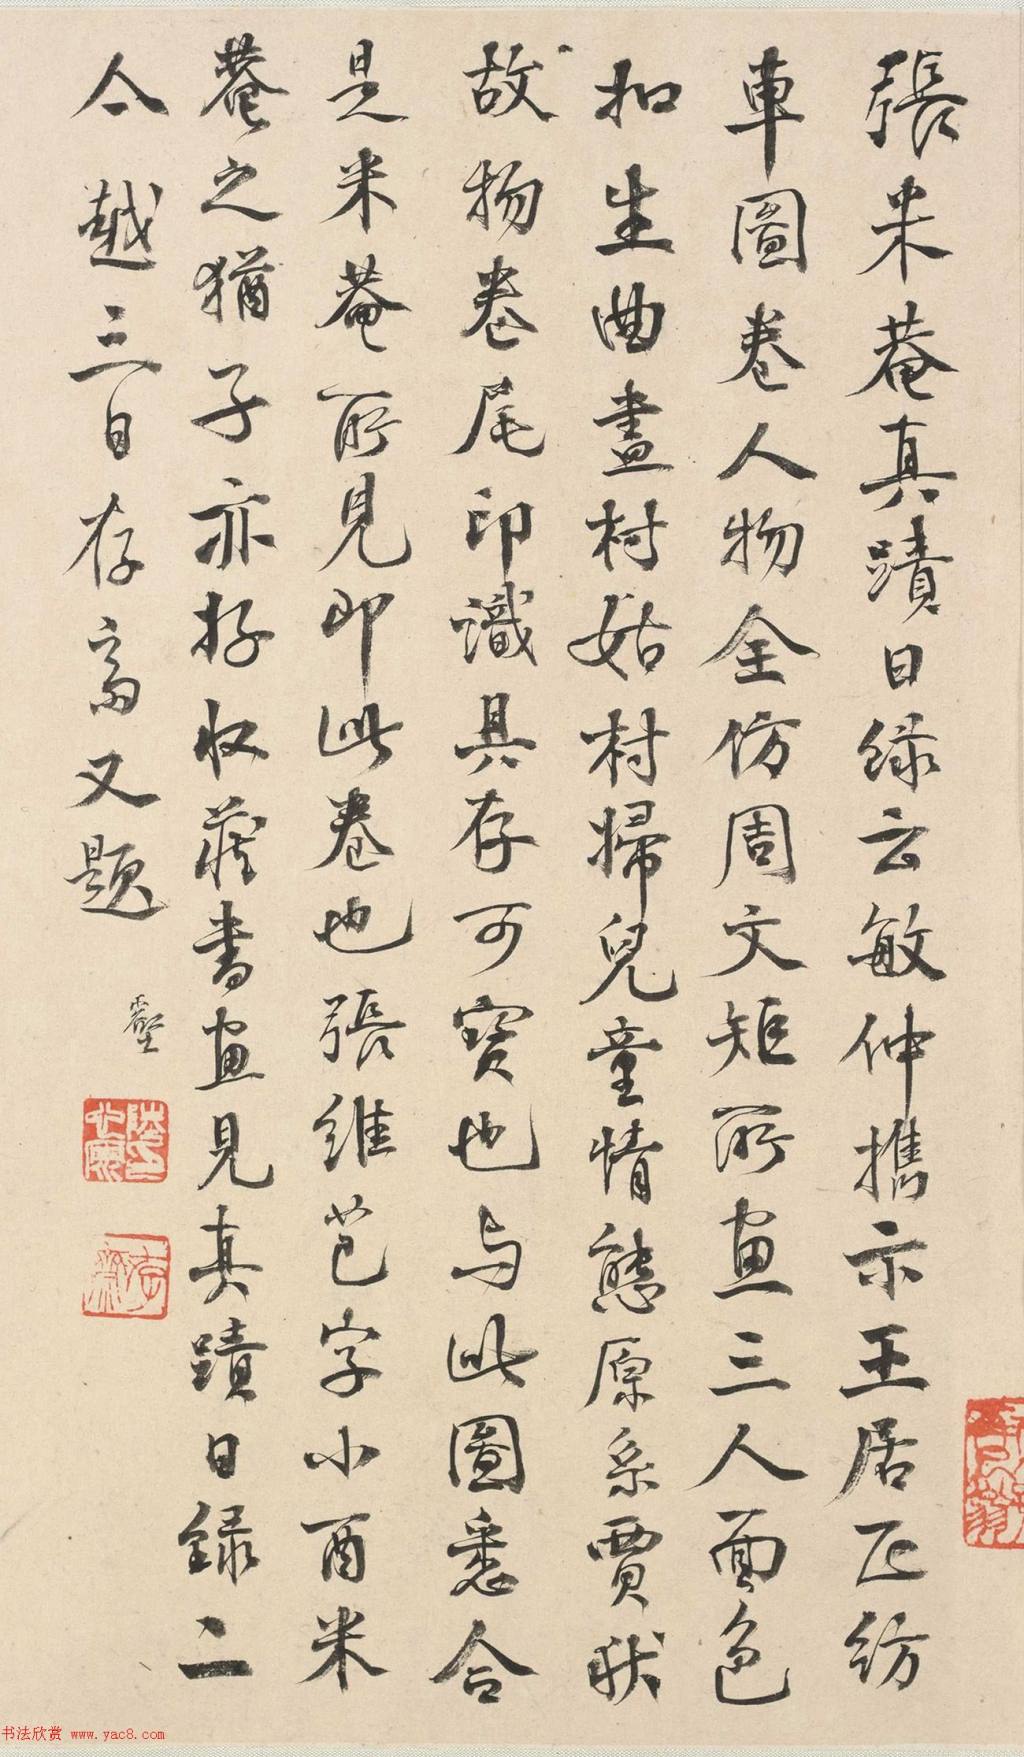 張米菴真蹟日録云敏仲携示王居正紡
車圖卷人物全仿周文矩所畫三人面色
扣生曲盡村姑村婦兒童情態原系賈秋
故物卷尾印識具存可寶也与此圖悉合
是米菴所見即此卷也張維芑字小酉米
菴之猶子亦好收藏書畫見真蹟日録二
今越三日存齋又題
書法欣赏 www.yac8.com